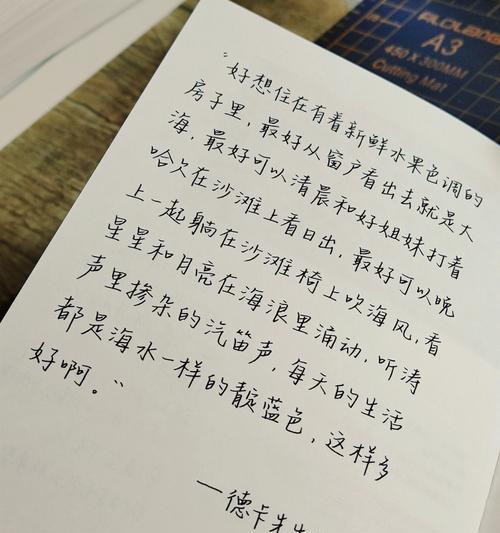 “好想住在有着新鲜水果色调的
房子里，最好从窗户看出去就是大
海，最好可以清晨和好姐妹打着
哈欠在沙滩上看日出，最好可以晚
上一起躺在沙滩椅上吹海风，看
星星和月亮在海浪里涌动，听涛
声里掺杂的汽笛声，每天的生活
都是海水一样的靛蓝色，这样多
好啊。”
—德卡先生
A3
450 X 300MM
Cutting Mat